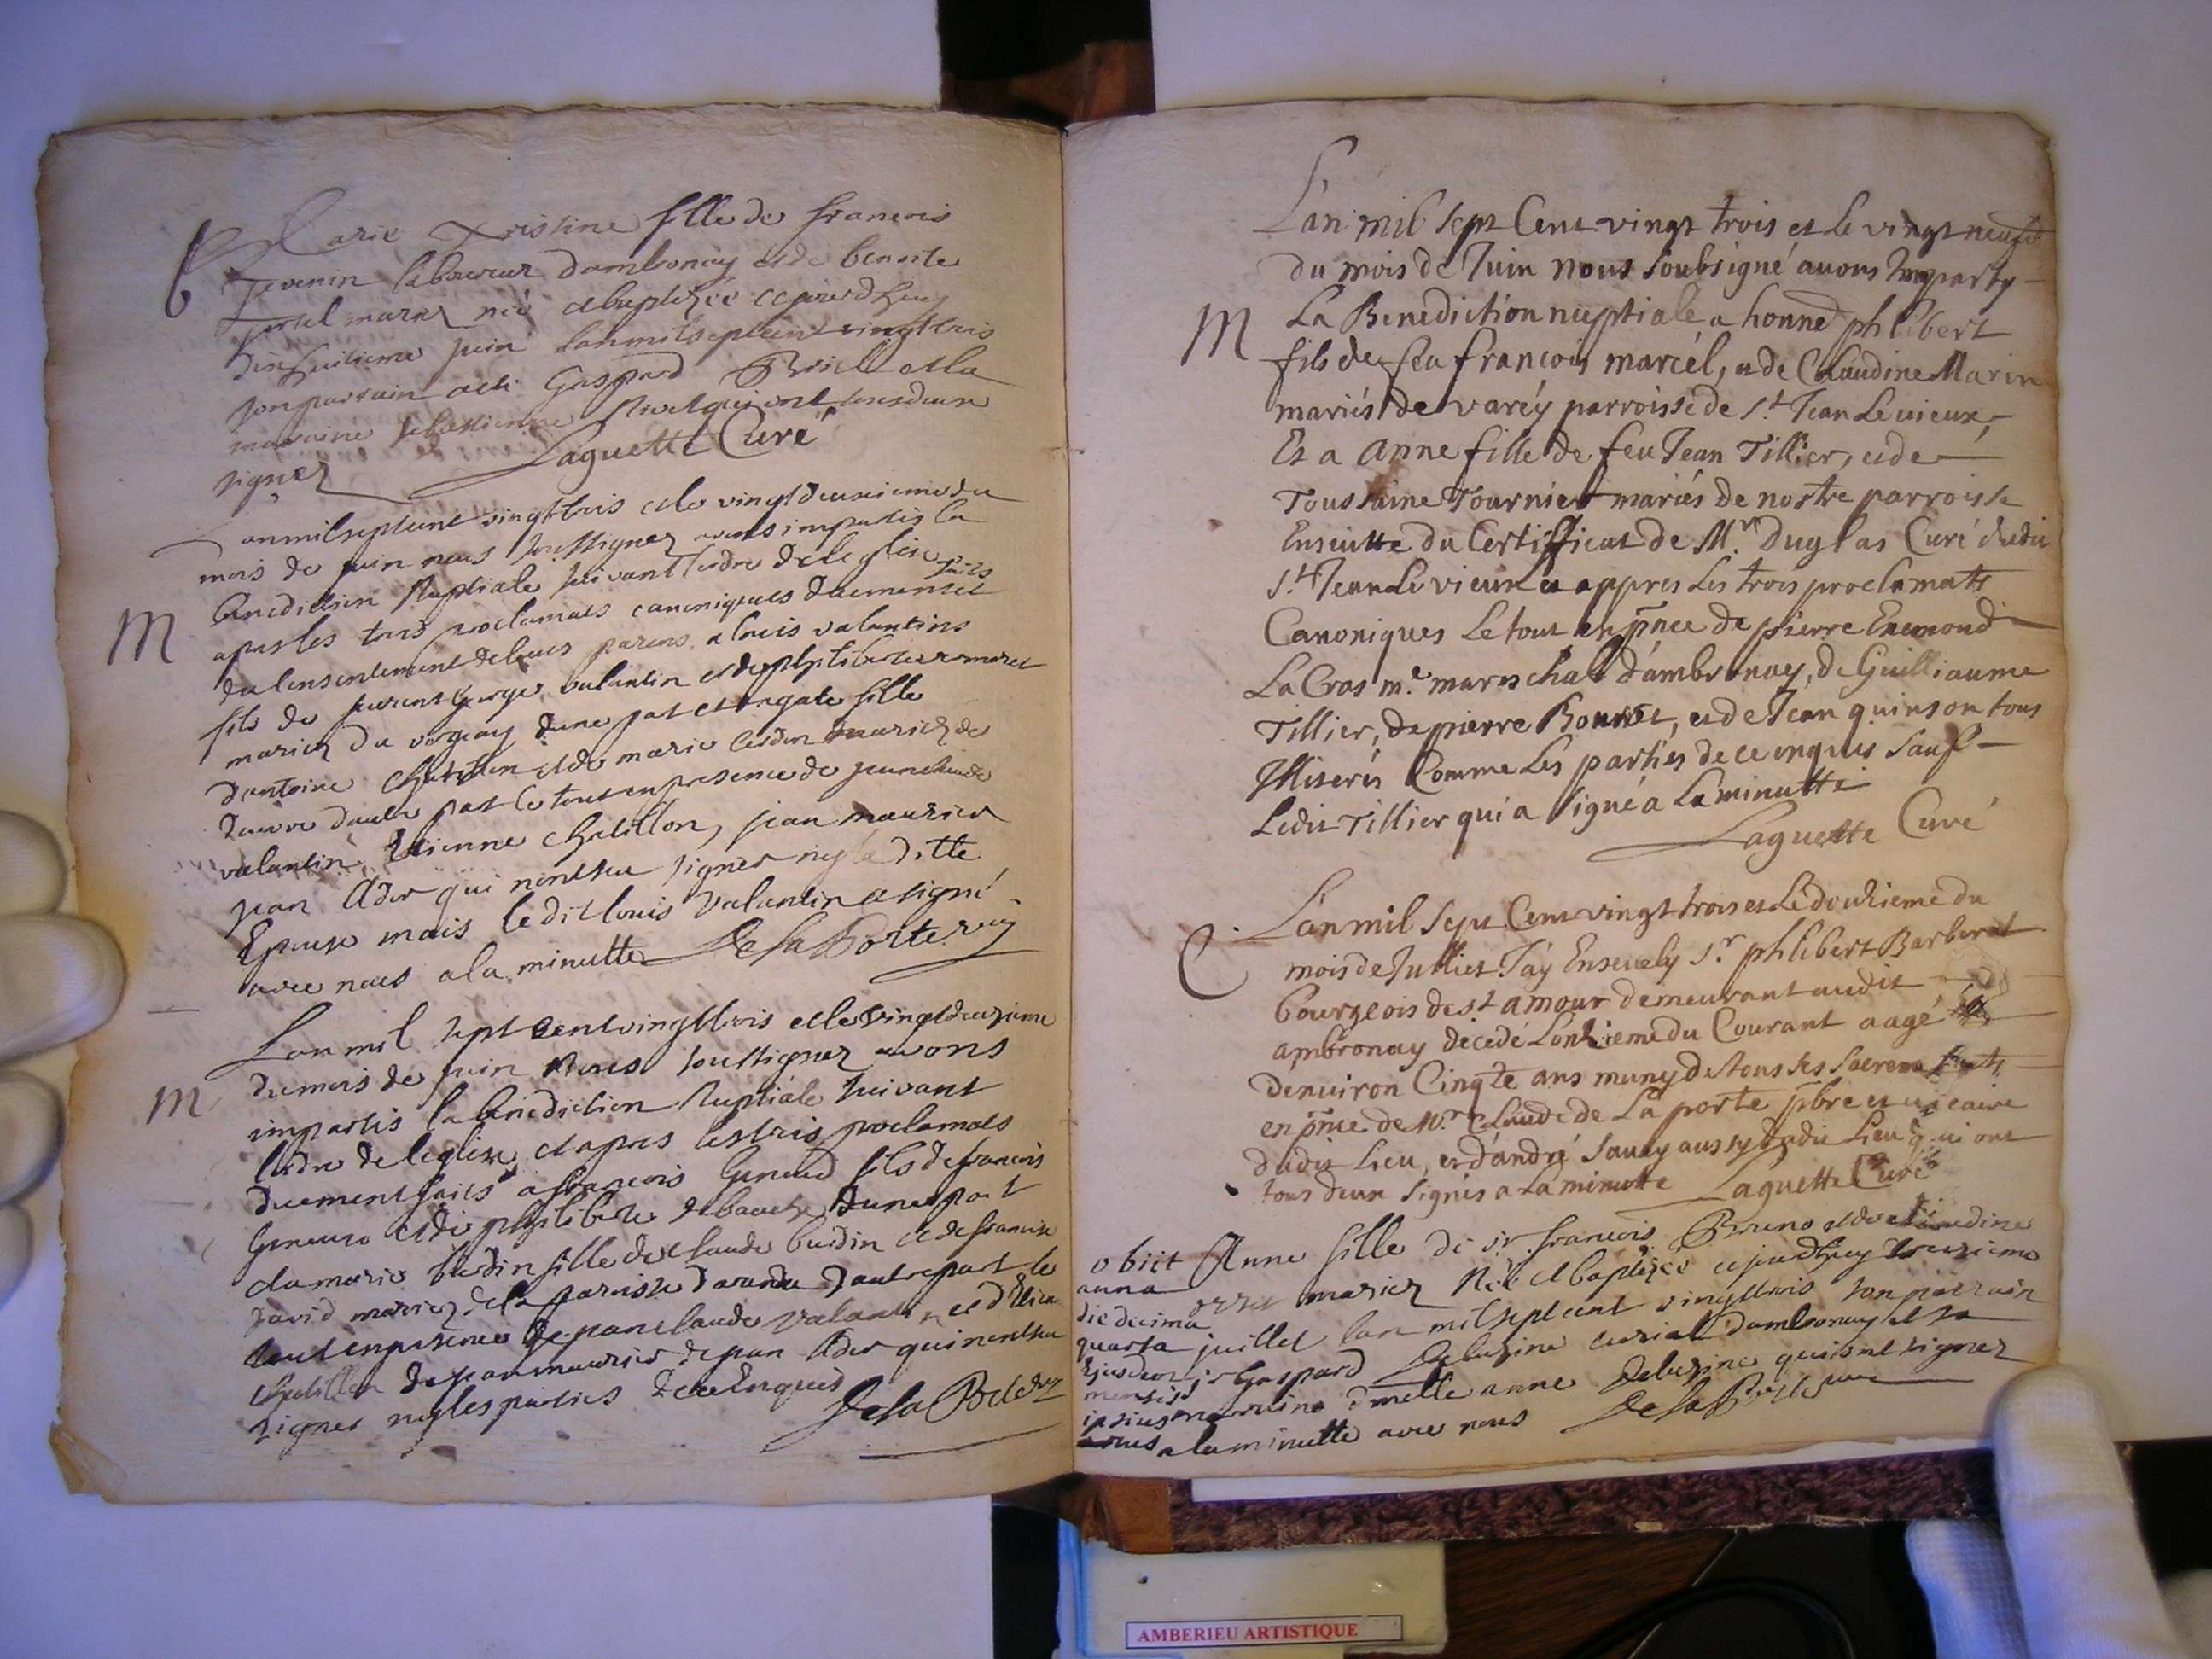 Marie Xristine fille de francois
Tevenin laboureur dambronay et de benoite
mariez née et baptizée ce jourdhuy
dixhuitieme juin lan mil sept cent vingt trois
son parrain a été Gaspard et la
maraine qui ont tous deux
signez Laguette Curé
B
Lan mil sept cent vingt trois et le vingt deuxieme du
mois de juin nous soussignez avons impartis la
benediction Nuptiale suivant lordre de leglise
apres les trois proclamats canoniques duement faits
du consentement de leurs parens a louis valantin
fils de George valantin et de philiberte
mariez du d'une part et agate fille
d'antoine Chatillon et de marie mariez de
d'autre part le tout en presence de jean claude
valantin, Etienne chatillon, jean maurier
jean Ador qui n'ont sceu signer ny la ditte
Epouse mais le dit louis valantin a signé
avec nous a la minutte De la Porte
M
Lan mil sept cent vingt trois et le vingt deuxieme
du mois de juin Nous soussignez avons
impartis la benediction Nuptiale suivant
lordre de leglise et apres les trois proclamats
duement faits a francois fils de francois
et de philiberte d'une part
et a marie burdin fille de claude burdin et de francoise
david mariez de la paroisse d'autre part le
tout en presence de jean claude valantin et d'Etienne
chatillon de jean maurier de jean Ador qui n'ont sceu
signer ny les parties de ce Enquis De la Porte
M
L'an mil sept Cent vingt trois et Le vingt neuf
du mois de Juin nous soubsigné avons Imparty
La Benediction nuptiale a honné phlibert
fils de feu francois marcél, et de Claudine Marin
mariés de varéy parroisse de St Jean Le vieux,
Et a Anne fille de feu Jean Tillier, et de
Toussaine Tournier mariés de nostre parroisse
Ensuitte du Certifficat de Mr Duglas Curé dudit
St Jean Le vieux Et appres Les trois proclamats
Canoniques Le tout en pnce de pierre Enemond
La Cras me mareschal d'ambronay, de Guilliaume
Tillier, de pierre, et de Jean quinson tous
Illiterés Comme Les parties de ce enquis Sauf
Ledit Tillier qui a signé a La minutte
Laguette Curé
M
L'an mil sept Cent vingt trois et Le douzieme du
mois de Julliet J'ay Ensevely Sr phlibert Barberat
bourgeois de st amour demeurant audit
ambronay décedé L'onzieme du Courant aagé
denviron Cinqte ans muny de tous ses sacrements
en pnce de Mre Claude de La porte pbre et vicaire
dudit Lieu, et d'andré Savey aussy dudit Lieu qui ont
tous deux signés a La minutte Laguette Curé
C
Anne fille de sr francois Bruno et de claudine
mariez Née et baptizée ce jourdhuy treizieme
juillet lan mil sept cent vingt trois son parrain
sr Gaspard Delusine curial dambronay et sa
marraine dmelle anne Delusine qui ont signez
a la minutte avec nous De la Porte
obiit
anna
die decima
quarta
Ejusdem
mensis
ipsius
AMBERIEU ARTISTIQUE